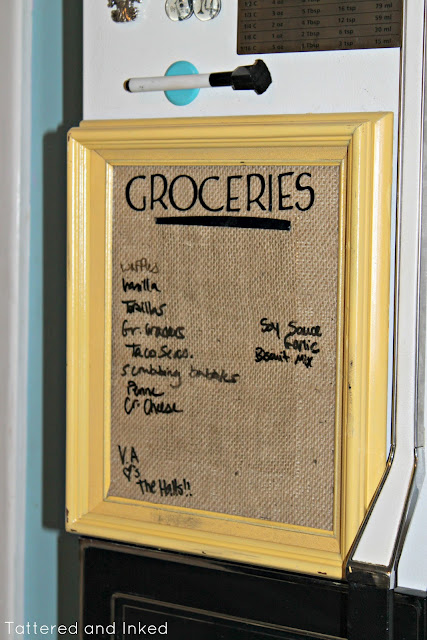 GROCERIES
waffles
Vanilla
Tortillas
Gr. Crackers
Taco Seas.
scrubbing bubbles
Penne
Cr. Cheese
Soy Sauce
Garlic
Biscuit Mix
V.A
♡'s
the Halls!!
Tattered and Inked